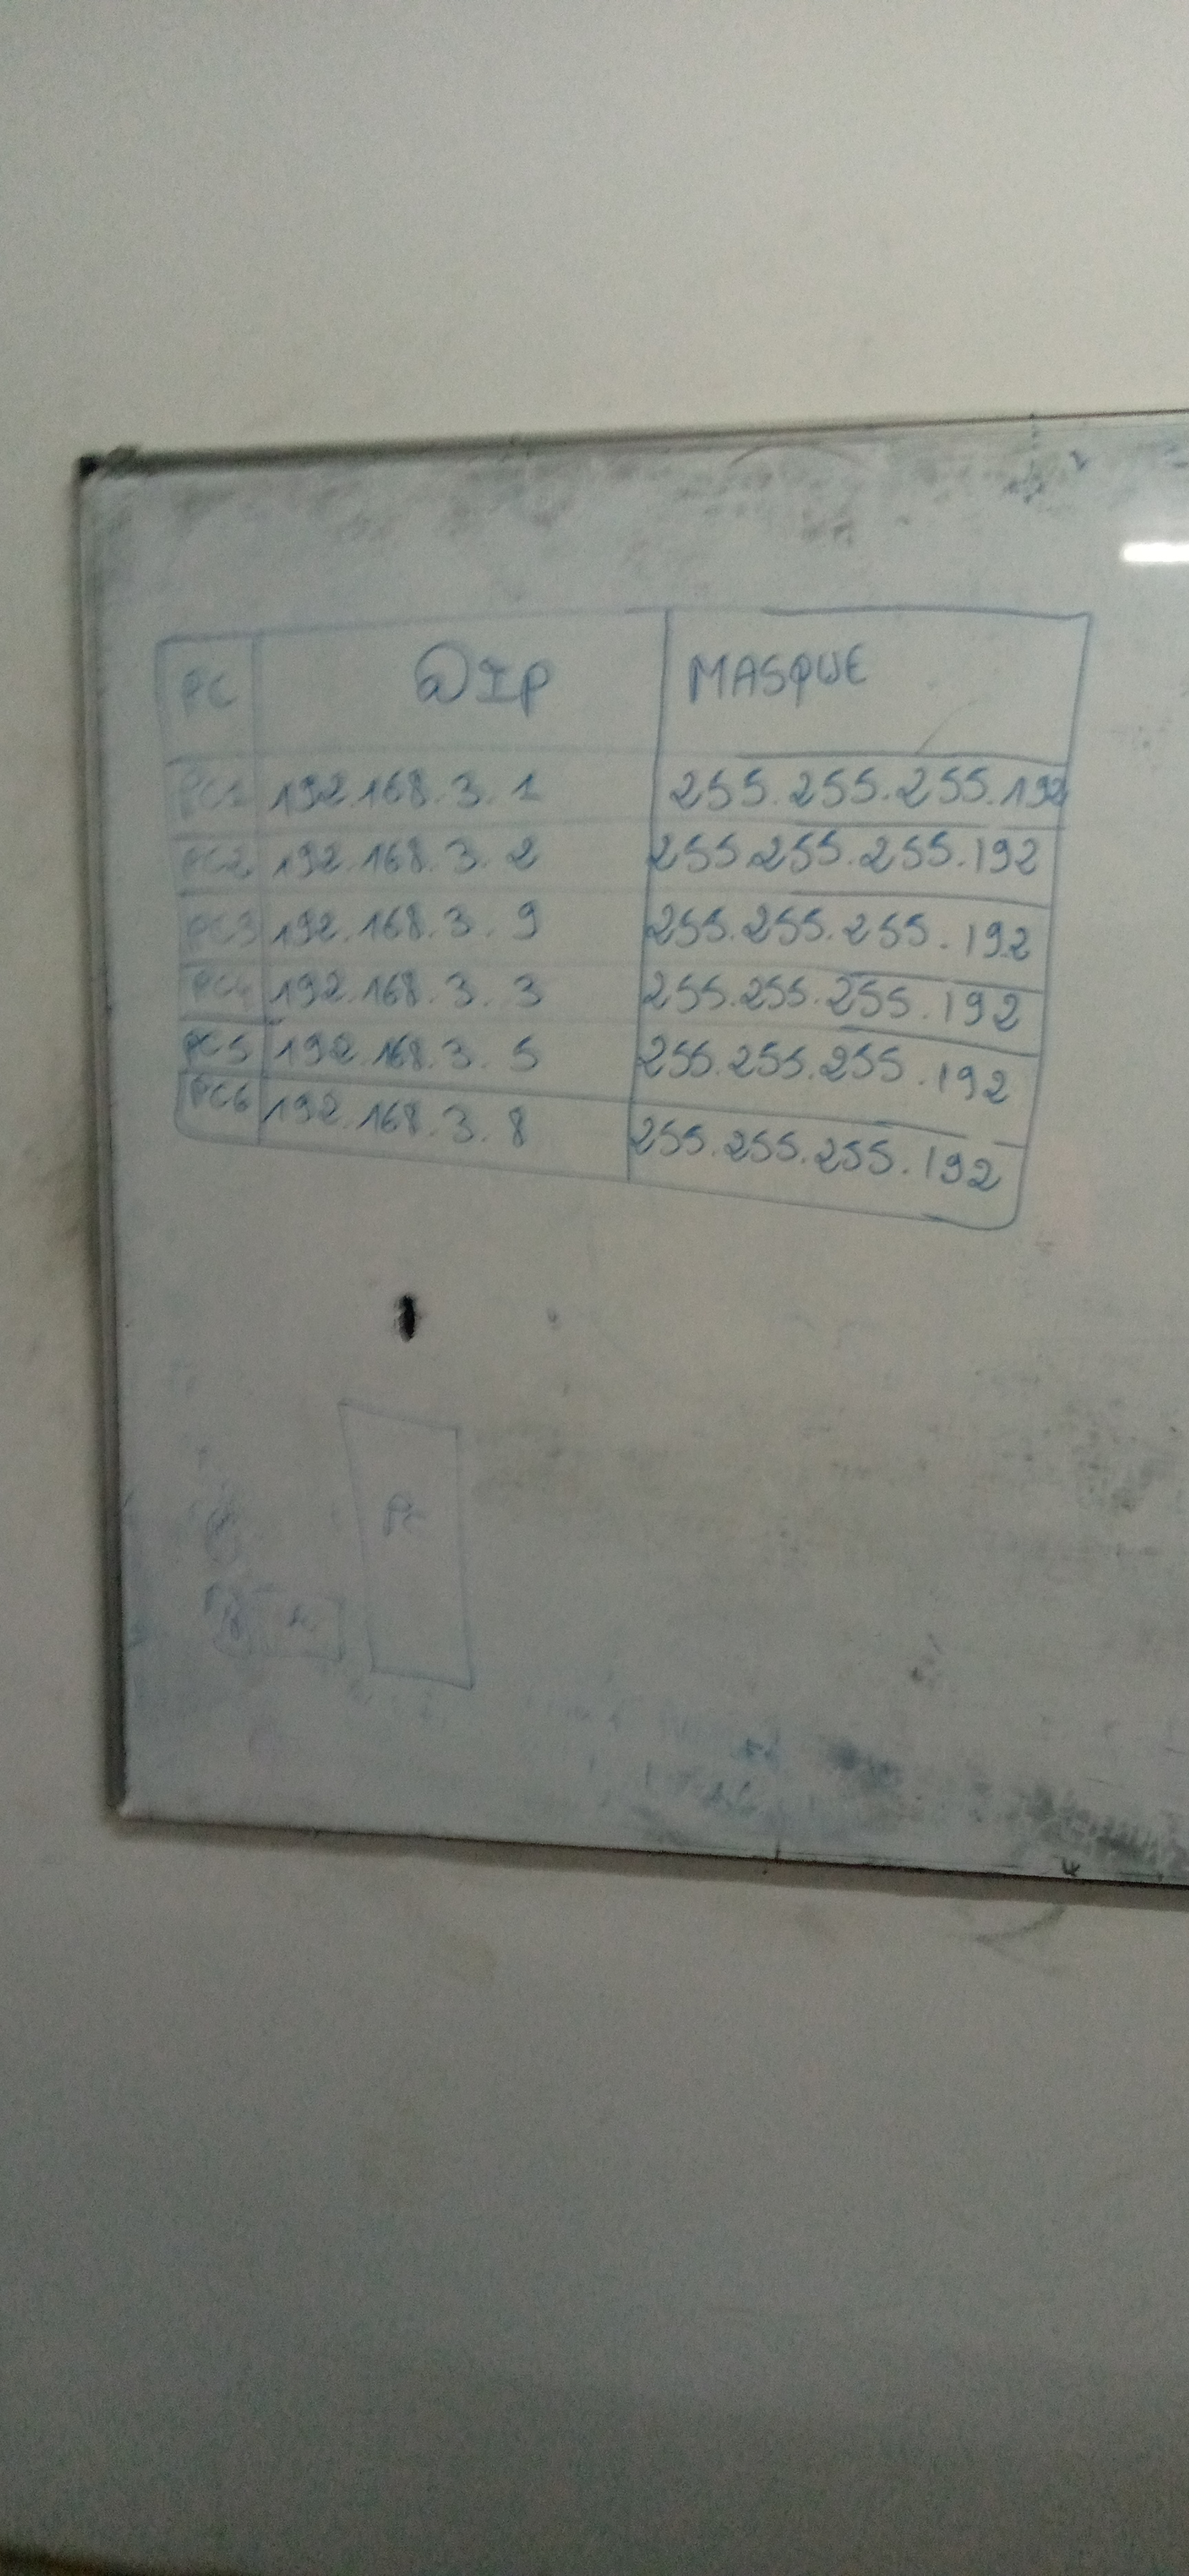 PC @IP MASQUE
PC1 192.168.3.1 255.255.255.192
PC2 192.168.3.2 255.255.255.192
PC3 192.168.3.9 255.255.255.192
PC4 192.168.3.3 255.255.255.192
PC5 192.168.3.5 255.255.255.192
PC6 192.168.3.8 255.255.255.192